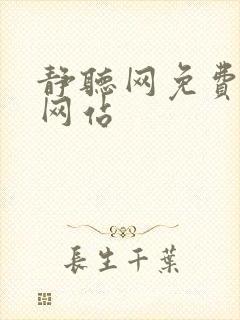 静聽网免費
网站
長生千葉